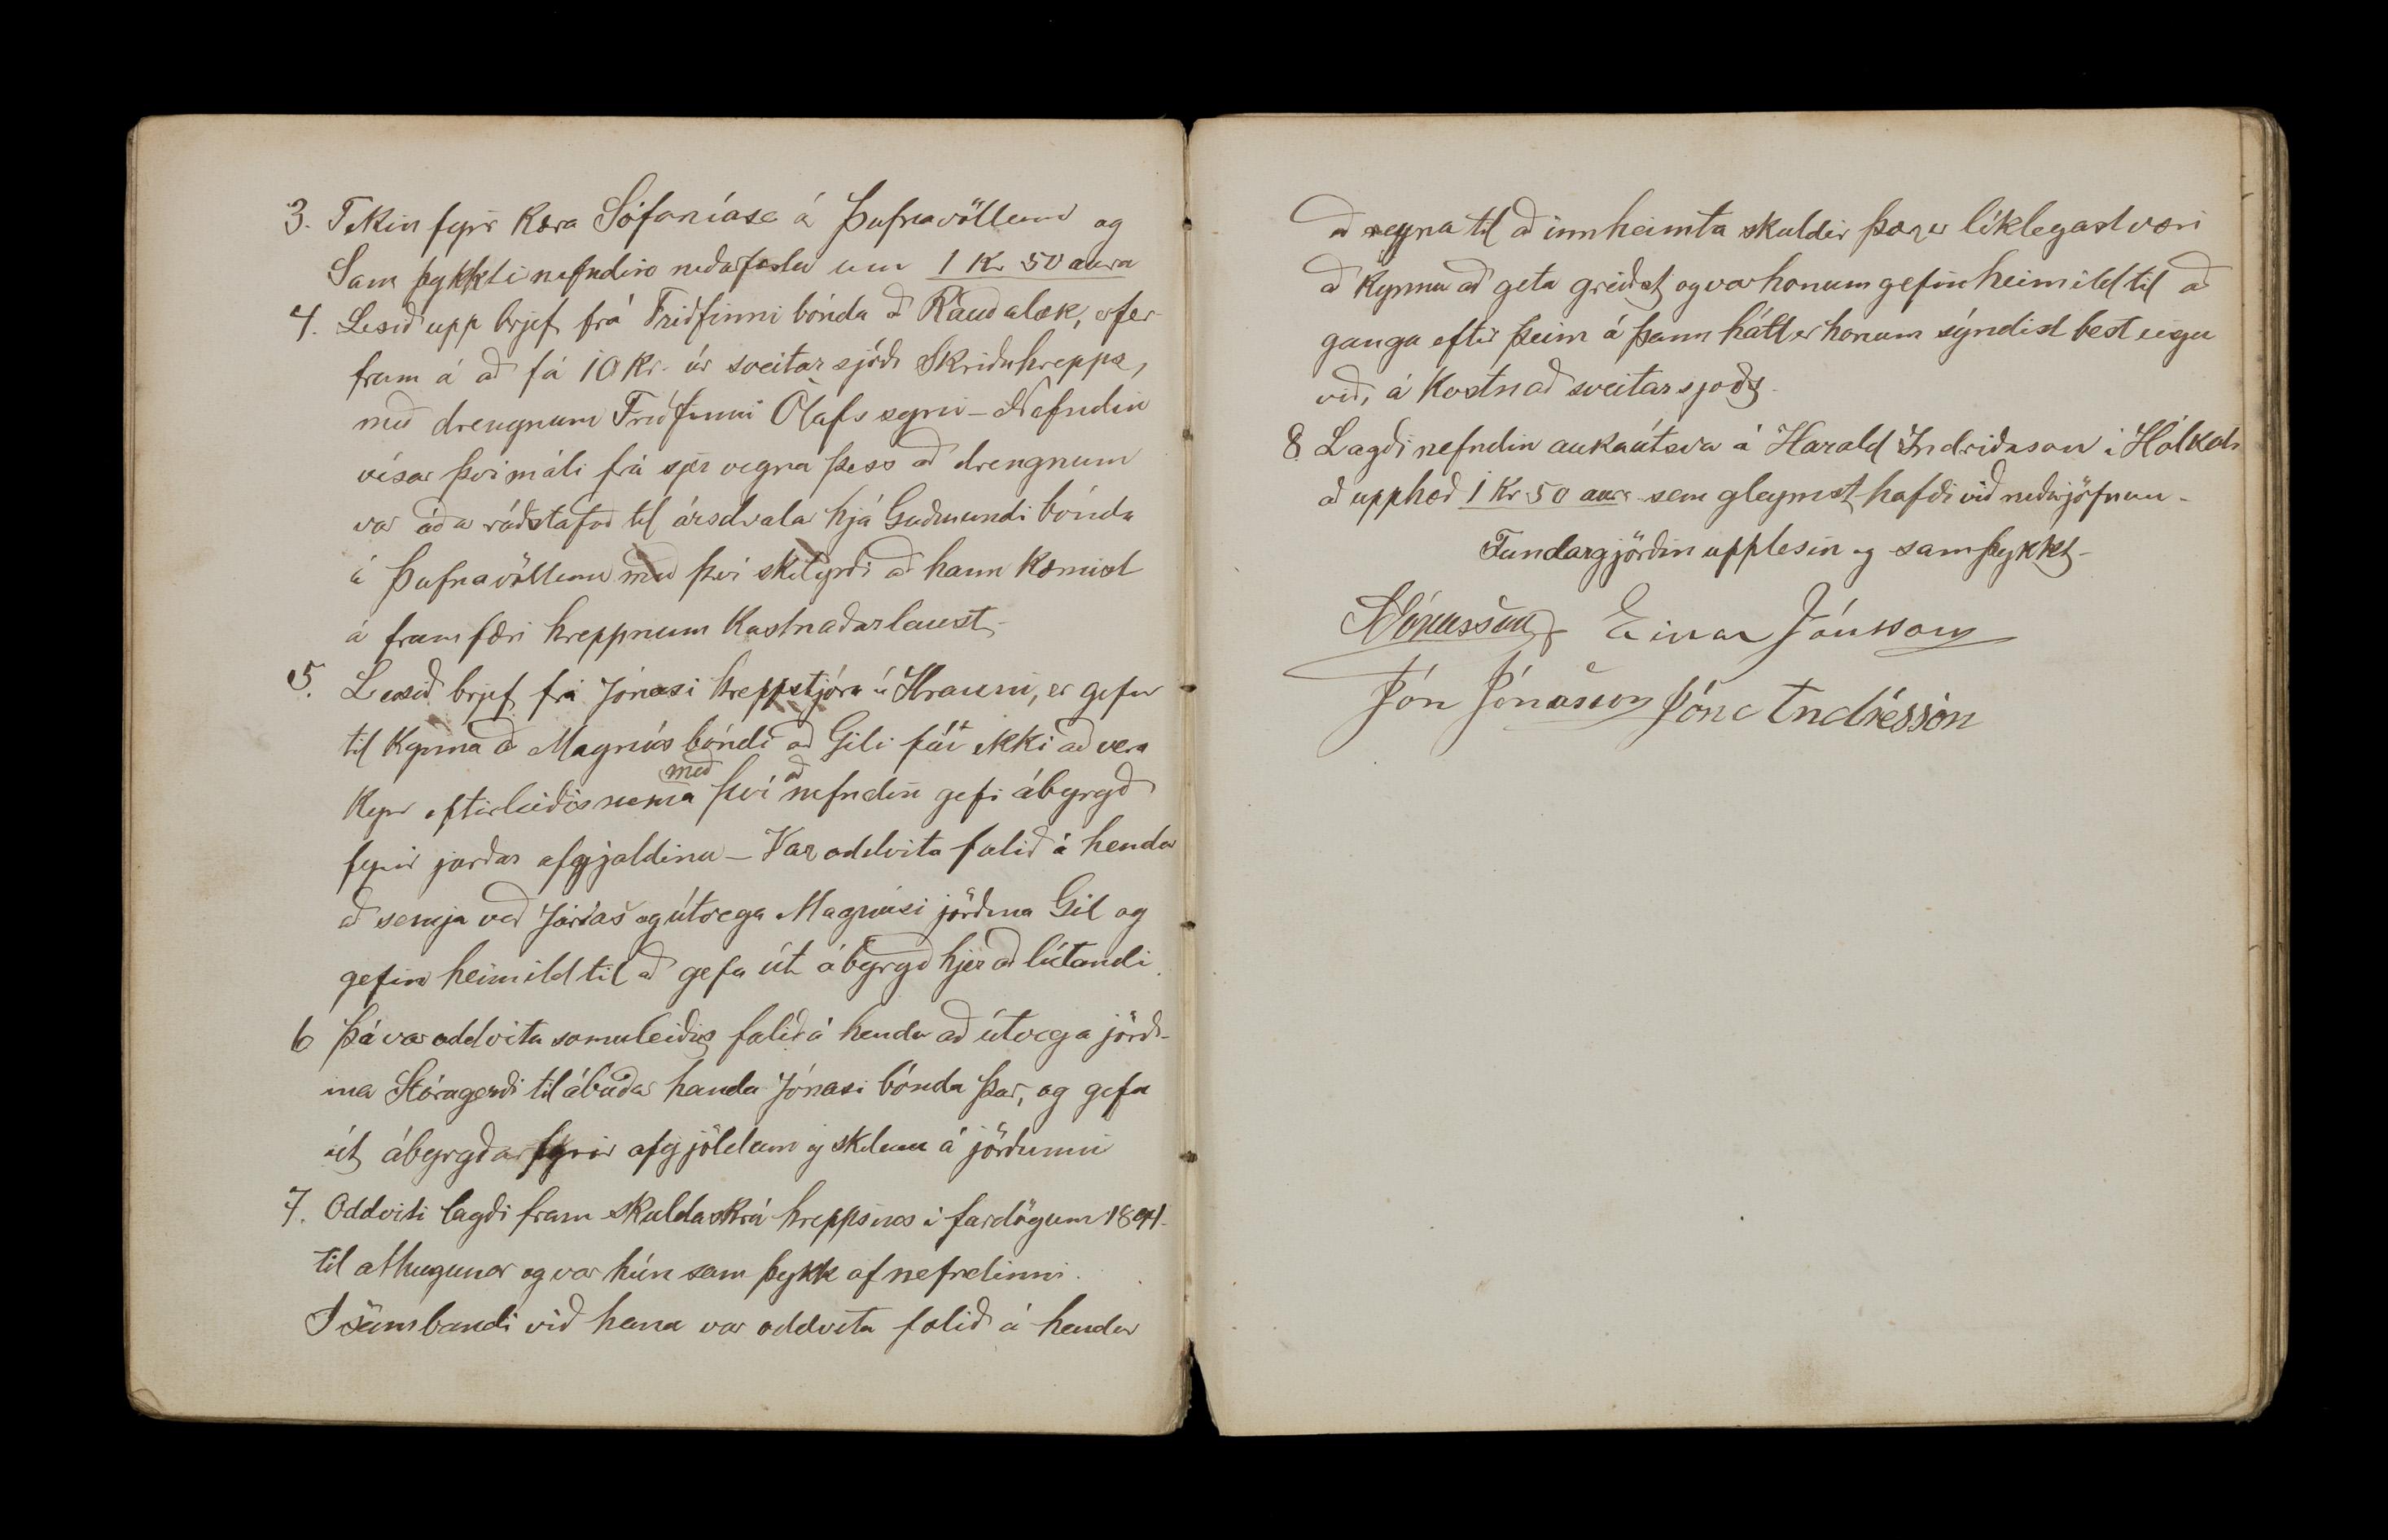 3. Tekin fyrir kæra Sófaníasa á Þufnavöllum og
Samþykkti nefndin niðurfærslu um 1 Kr 50 aura
4. Lesið upp brjef frá Friðfinni bónda á Rauðalæk, er fer
fram á að fá 10 Kr. úr sveitarsjóði Skriðuhrepps,
með drengnum Friðfinni Ólafssyni - Nefndin
vísar því máli frá sjer vegna þess að drengnum
var áður ráðstafað til ársdvalar hjá Guðmundi bónda
á Þufnavöllum með því skilyrði að hann kæmist
á framfæri hreppnum Kostnaðarlaust -
5. Lesið brjef frá Jónasi hreppstjóra í Hrauni, er gefur
til kynna að Magnús bóndi að Gili fái ekki að vera
Kyr eftirleiðis nema með því að nefndin gefi ábyrgð
fyrir jarðar afgjaldinu - Var oddvita falið á hendur
að semja við Jónas og útvega Magnúsi jörðina Gil og
gefin heimild til að gefa út ábyrgð hjer að lútandi.
6 Þá var oddvita somuleiðis falið á hendur að útvega jörð-
ina Stóragerði til ábúðar handa Jónasi bónda þar, og gefa
út ábyrgðar fyrir afgjöldum og skilum á jörðunni
7. Oddviti lagði fram skuldaskrá hreppsins í fardögum 1891.
til athugunar og var hún samþykk af nefndinni.
I sambandi við hana var oddvita falið á hendur
að reyna til að innheimta skuldir þær er líklegast væri
að kynnu að geta greiðst og var honum gefin heimild til að
ganga eftir þeim á þann hátt er honum sýndist best eiga
við, á Kostnað sveitarsjoðs.
8 Lagði nefndin aukaútsvar á Harald Indriðason í Hólkoti
að upphæð 1 Kr 50 aura sem gleymst hafði við niðurjöfnun -
Fundargjörðin upplesin og samþykkt -
Jónasson Einar Jónsson
Jón Jónasson Jón Andrésson